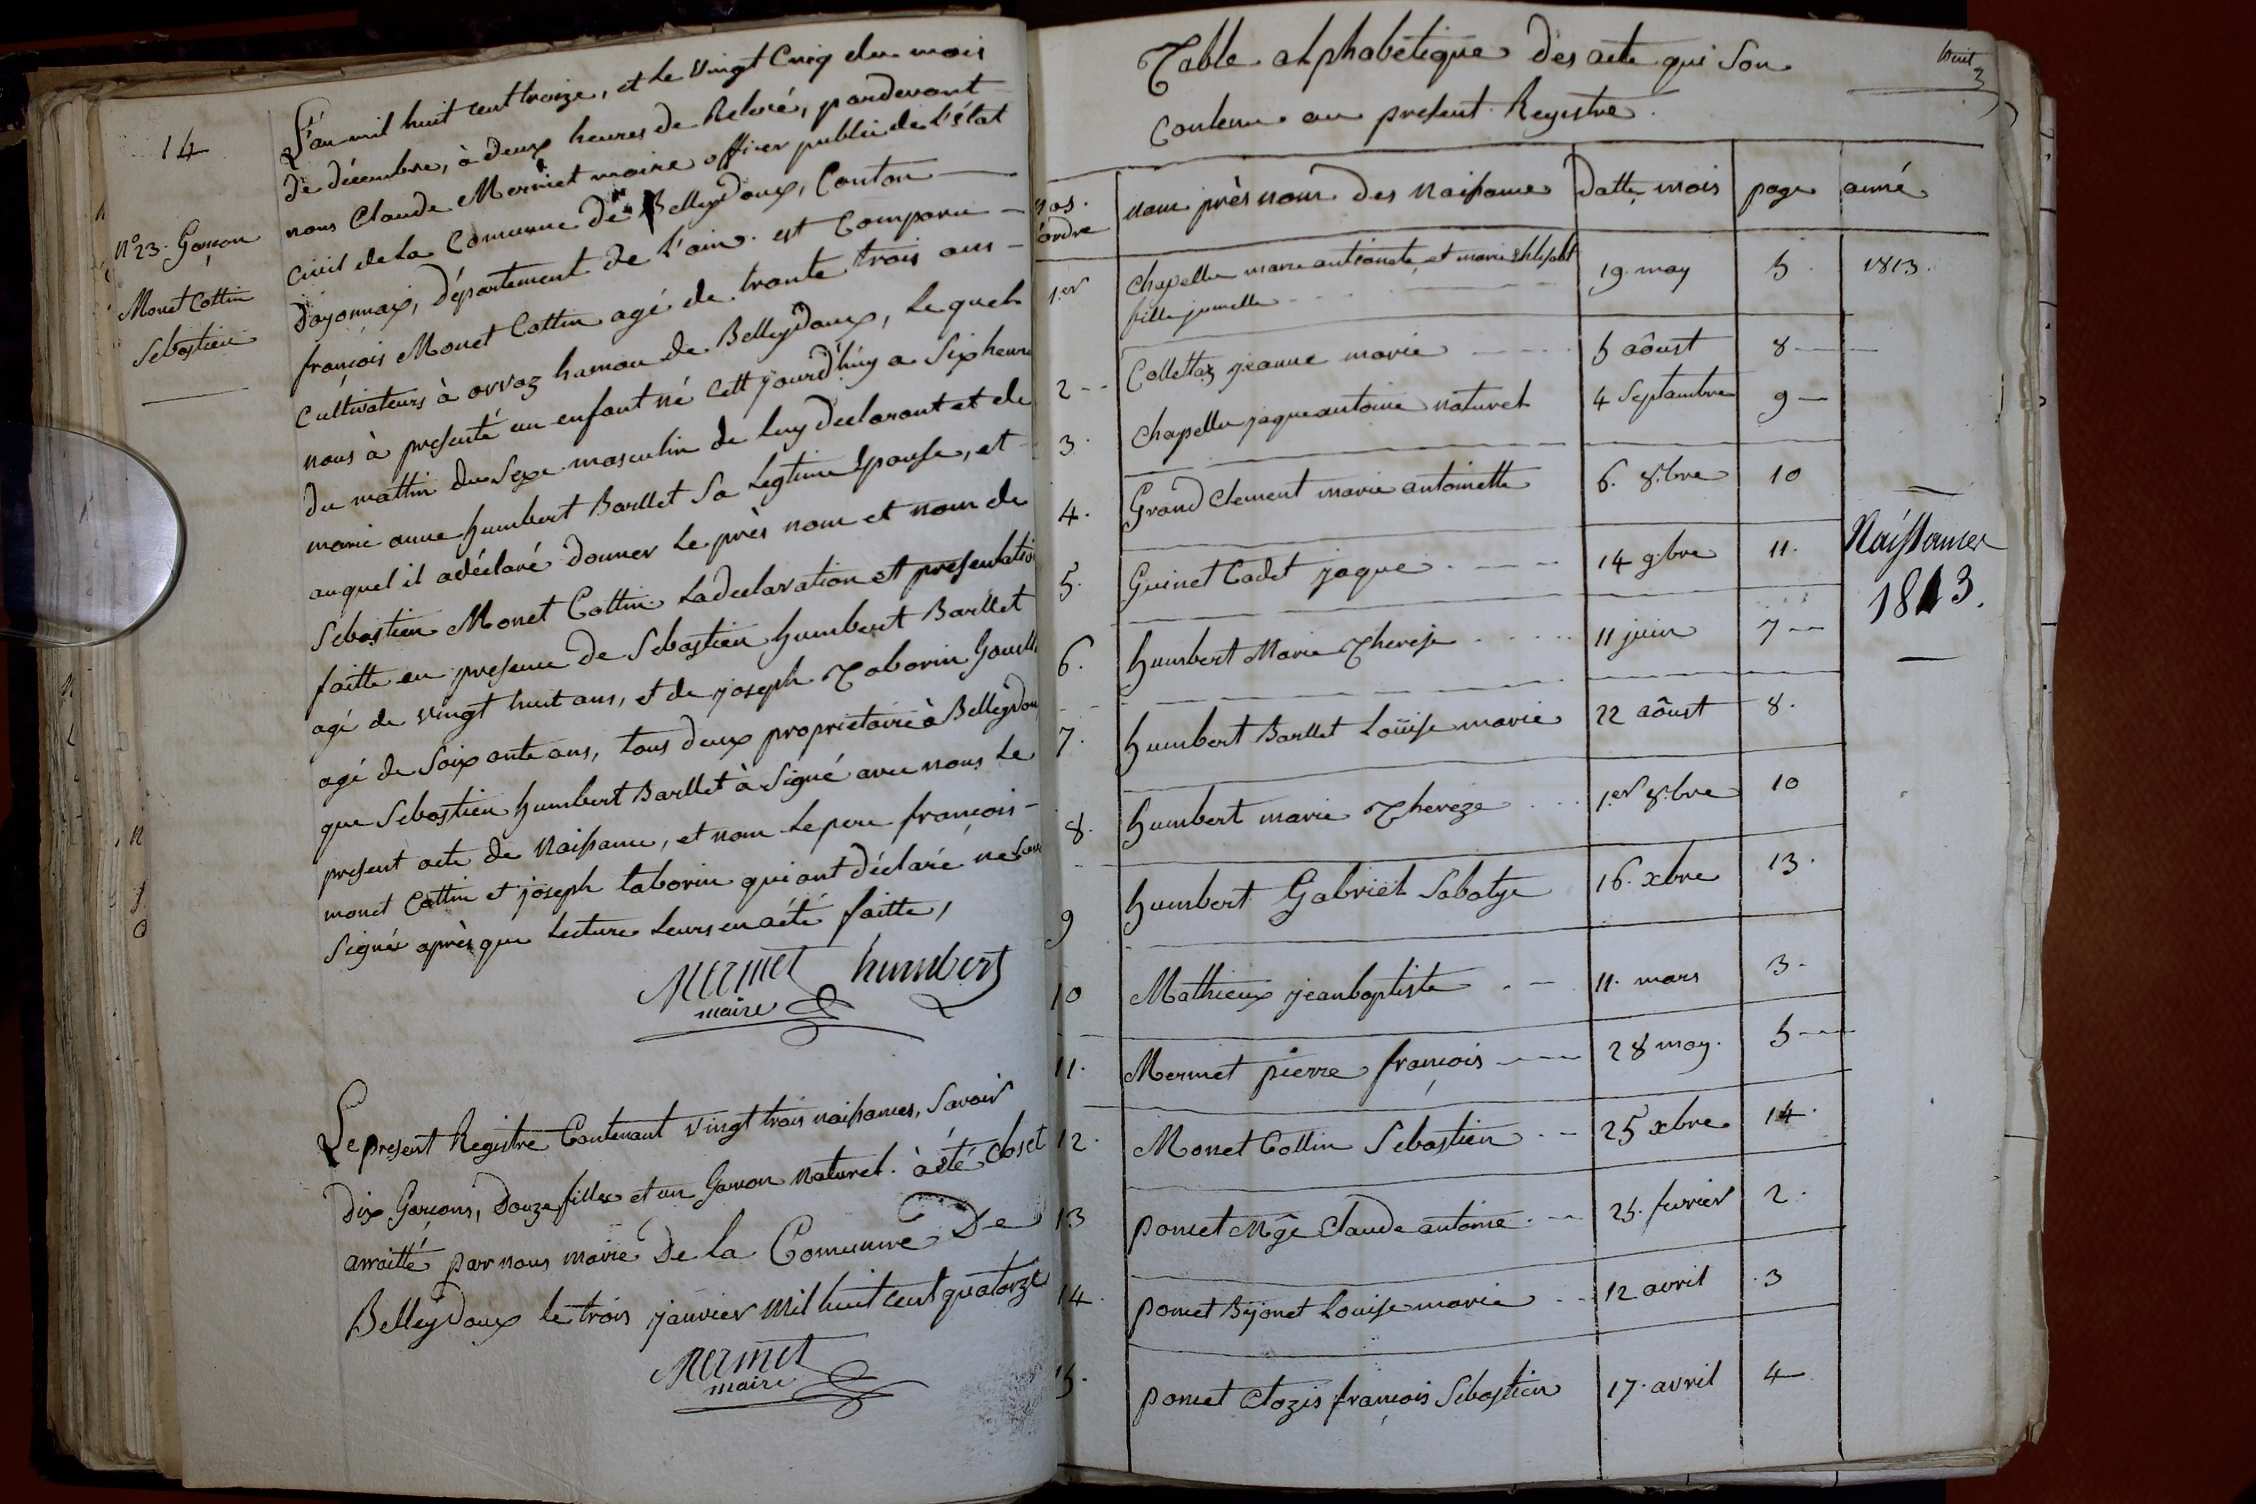 14
N° 23. Garçon
Monet Cottin
Sebastien
L'an mil huit cent traize, et le vingt Cinq du mois
de décembre, à deux heures de Relevé, pardevant
nous Claude Mermet maire officier public de l'état
civil de la Comunne de Belleydoux, Canton
d'ayonnax, département de l'ain. est Comparu
françois Monet Cottin agé de trante trois ans
Cultivateurs à orvaz hamau de Belleydoux, Lequel
nous à presenté un enfant né Cett jourd'huy a Six heure
du mattin du Sexe masculin de luy declarant et de
marie anne humbert Barllet Sa Legtime Epouse, et
auquel il a déclaré donner Le près nom et nom de
Sebastien Monet Cottin. La declaration et presentation
faitte en presence de Sebastien humbert Barllet
agé de vingt huit ans, et de joseph Taborin
agé de Soixante ans, tous deux proprietaire à Belleydou
que Sebastien humbert Barllet à Signé avec nous Le
present acte de Naissance, et nom Le pere françois
monet Cattin et joseph taborin qui ont déclaré ne
Signée après que Lecture Leurs en a été faitte,
Mermet humbert
maire
Le present Registre Contenant vingt trois naissances, Savoir
dix Garcons, douze filles et un Garcon Naturel. à été Closet
arraitté par nous maire de la Comunne De
Belleydoux le trois janvier Mil huit cent quatorze
Mermet
maire
Table alphabétique des acte qui Son
huit
3
Contenu au present Registre.
nos. ordre nom près nom des Naissance datte, mois page anné
1.er Chapellu marie antionete, et marie
fille jumelle 19. may 5. 1813.
2 Collettaz jeanne marie 5 aôust 8
3. Chapellu jaque antoine naturel 4 Septambre 9
4. Grand Clement marie antoinette 6. 8.bre 10
5. Guinet Cadet jaque 14 9.bre 11.
Naissances
1813.
6. humbert Marie Therese 11 juin 7
7. humbert Barllet Loüise marie 22 aôust 8.
8. humbert marie Thereze 1.er 8.bre 10
9 humbert Gabriël Sabatye 16. xbre 13.
10 Mathieux jean baptiste 11. mars 3.
11. Mermet pierre françois 28 may. 5
12. Monet Cottin Sebastien 25 xbre 14.
13 poncet Mge Claude antoine 25. fevrier 2.
14. poncet Bijonet Louise marie 12 avril 3
15. poncet Clozis françois Sebastien 17. avril 4